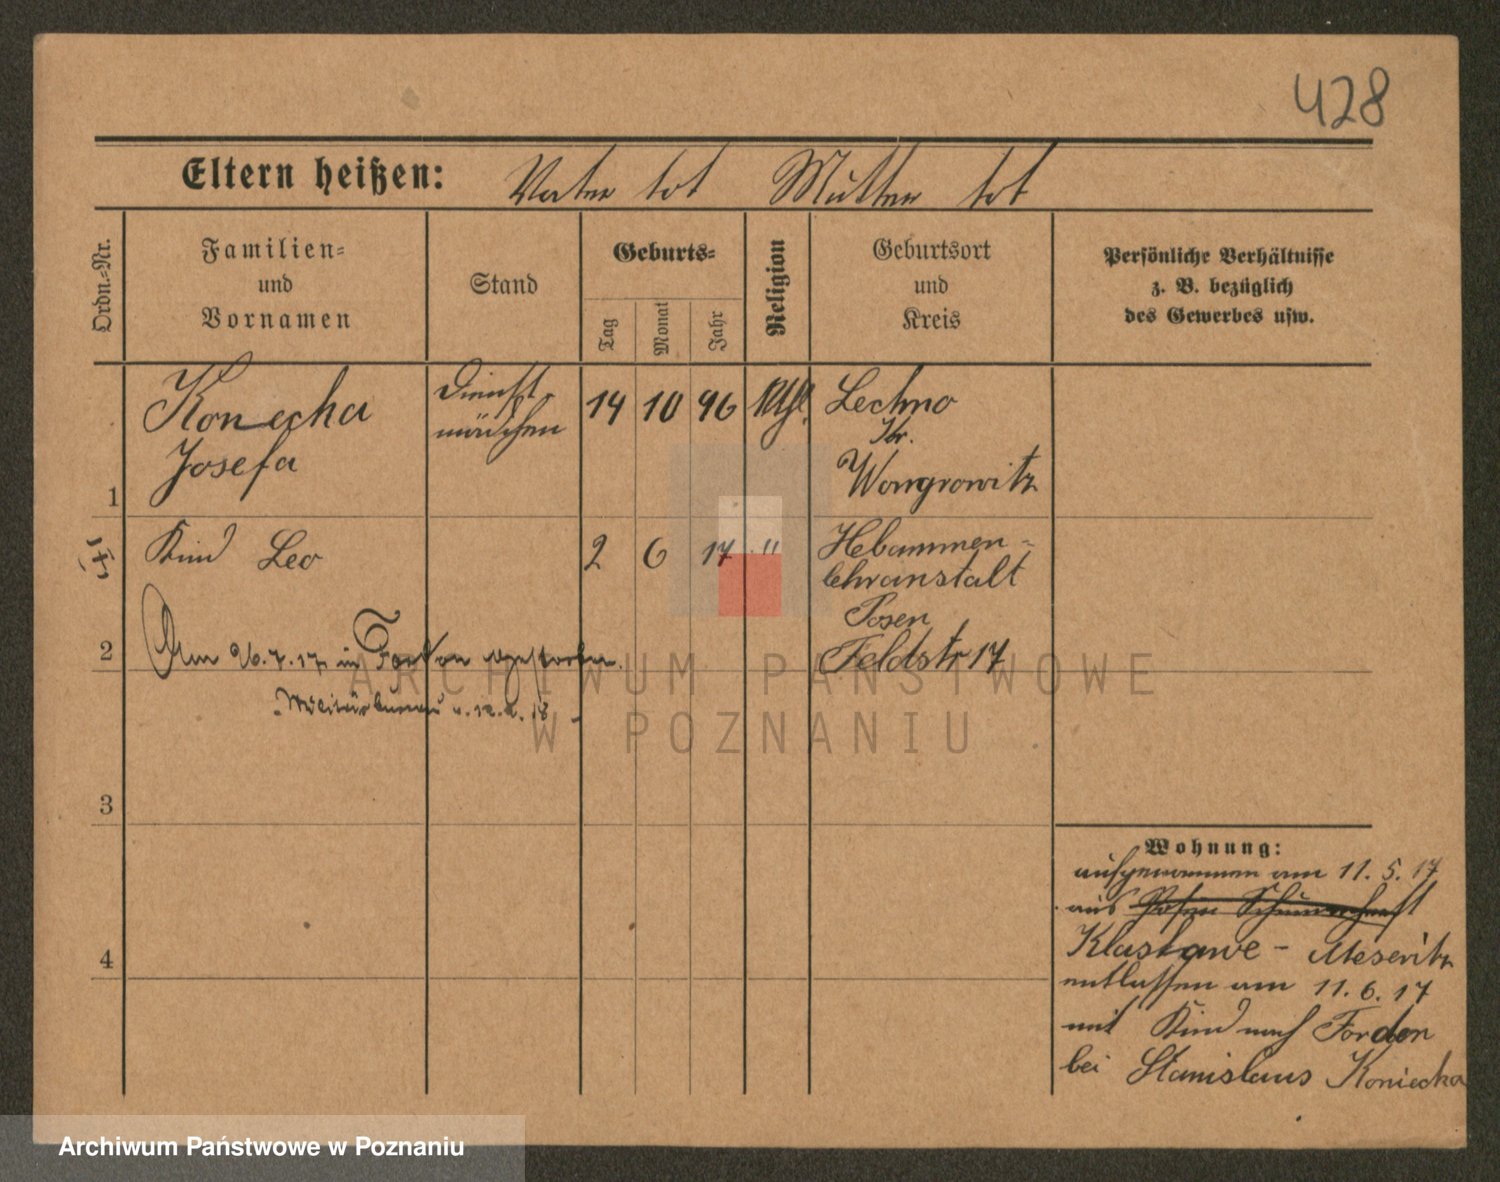 428
Eltern heißen: Vater tot Mutter tot
Ordn.-Nr.
Familien-
und
Vornamen
Stand
Geburts-
Tag
Monat
Jahr
Religion
Geburtsort
und
Kreis
Persönliche Verhältnisse
z. B. bezüglich
des Gewerbes usw.
Konecka
Josefa
Dienst-
mädchen
14 10 96 kth.
Lechno
Kr.
Wongrowitz
1
Kind Leo
2 6 17 "
Hebammen-
lehranstalt
Posen
Feldstr 17
2
Am 26.7.17 in Fordon verstorben.
12.2.18
3
4
Wohnung:
aufgenommen am 11.5.17
aus Posen
Klastawe - Meseritz
entlassen am 11.6.17
mit Kind nach Fordon
bei Stanislaus Koniecka
ARCHIWUM PAŃSTWOWE
W POZNANIU
Archiwum Państwowe w Poznaniu